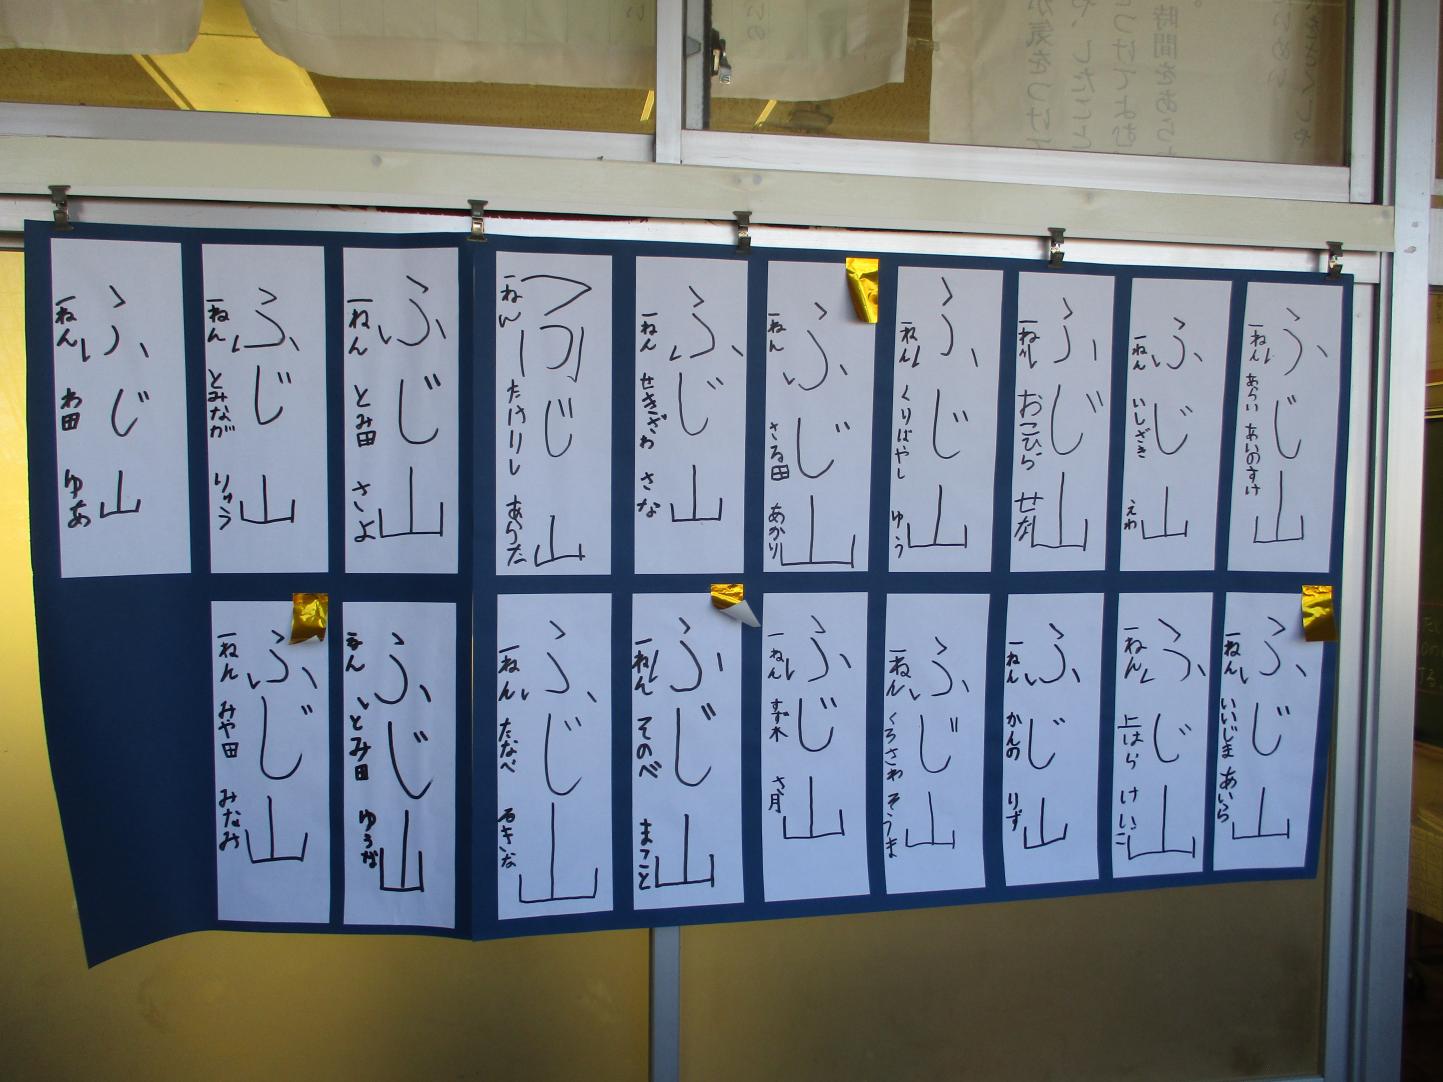 ふじ山
一ねん あらい あいのすけ
ふじ山
一ねん いしざき えわ
ふじ山
一ねん おこひら せな
ふじ山
一ねん くりばやし ゆう
ふじ山
一ねん さる田 あかり
ふじ山
一ねん せきざわ さな
ふじ山
一ねん たけりし あらた
ふじ山
一ねん とみ田 さよ
ふじ山
一ねん とみなが りゅう
ふじ山
一ねん わ田 ゆあ
ふじ山
一ねん いいじま あいら
ふじ山
一ねん 上はら けいこ
ふじ山
一ねん かんの りず
ふじ山
一ねん くろさわ そうま
ふじ山
一ねん すず木 さ月
ふじ山
一ねん そのべ まこと
ふじ山
一ねん たなべ
ふじ山
一ねん とみ田
ふじ山
一ねん みや田 みなみ